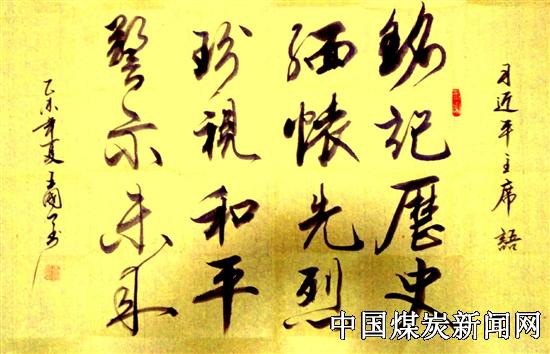 习近平主席語
銘記歷史
緬懷先烈
珍視和平
警示未来
乙未年夏王國
中国煤炭新闻网